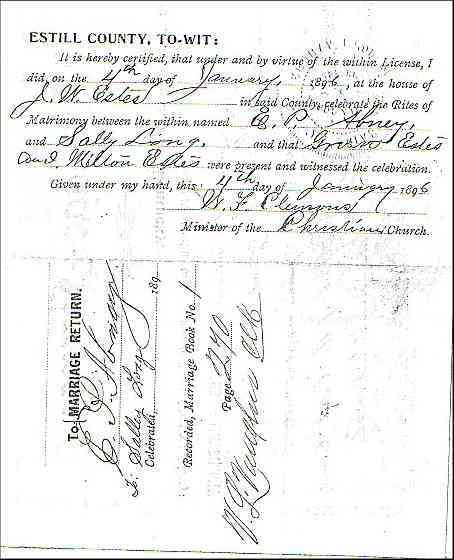 ESTILL COUNTY, TO-WIT:
It is hereby certified, that under and by virtue of the within License, I
did, on the 4th day of January, 1896, at the house of
J. W. Estes in said County, celebrate the Rites of
Matrimony between the within named C. P. Abney,
and Sally Long, and that Green Estes
and Milton Estes were present and witnessed the celebration.
Given under my hand, this 4th day of January 1896
W. F. Clemons
Minister of the Christian Church.
MARRIAGE RETURN.
C. P. Abney
To
Sally Long
Celebrated, 189
Recorded, Marriage Book No. 1
Page 270
W. L. Vaughn Clk